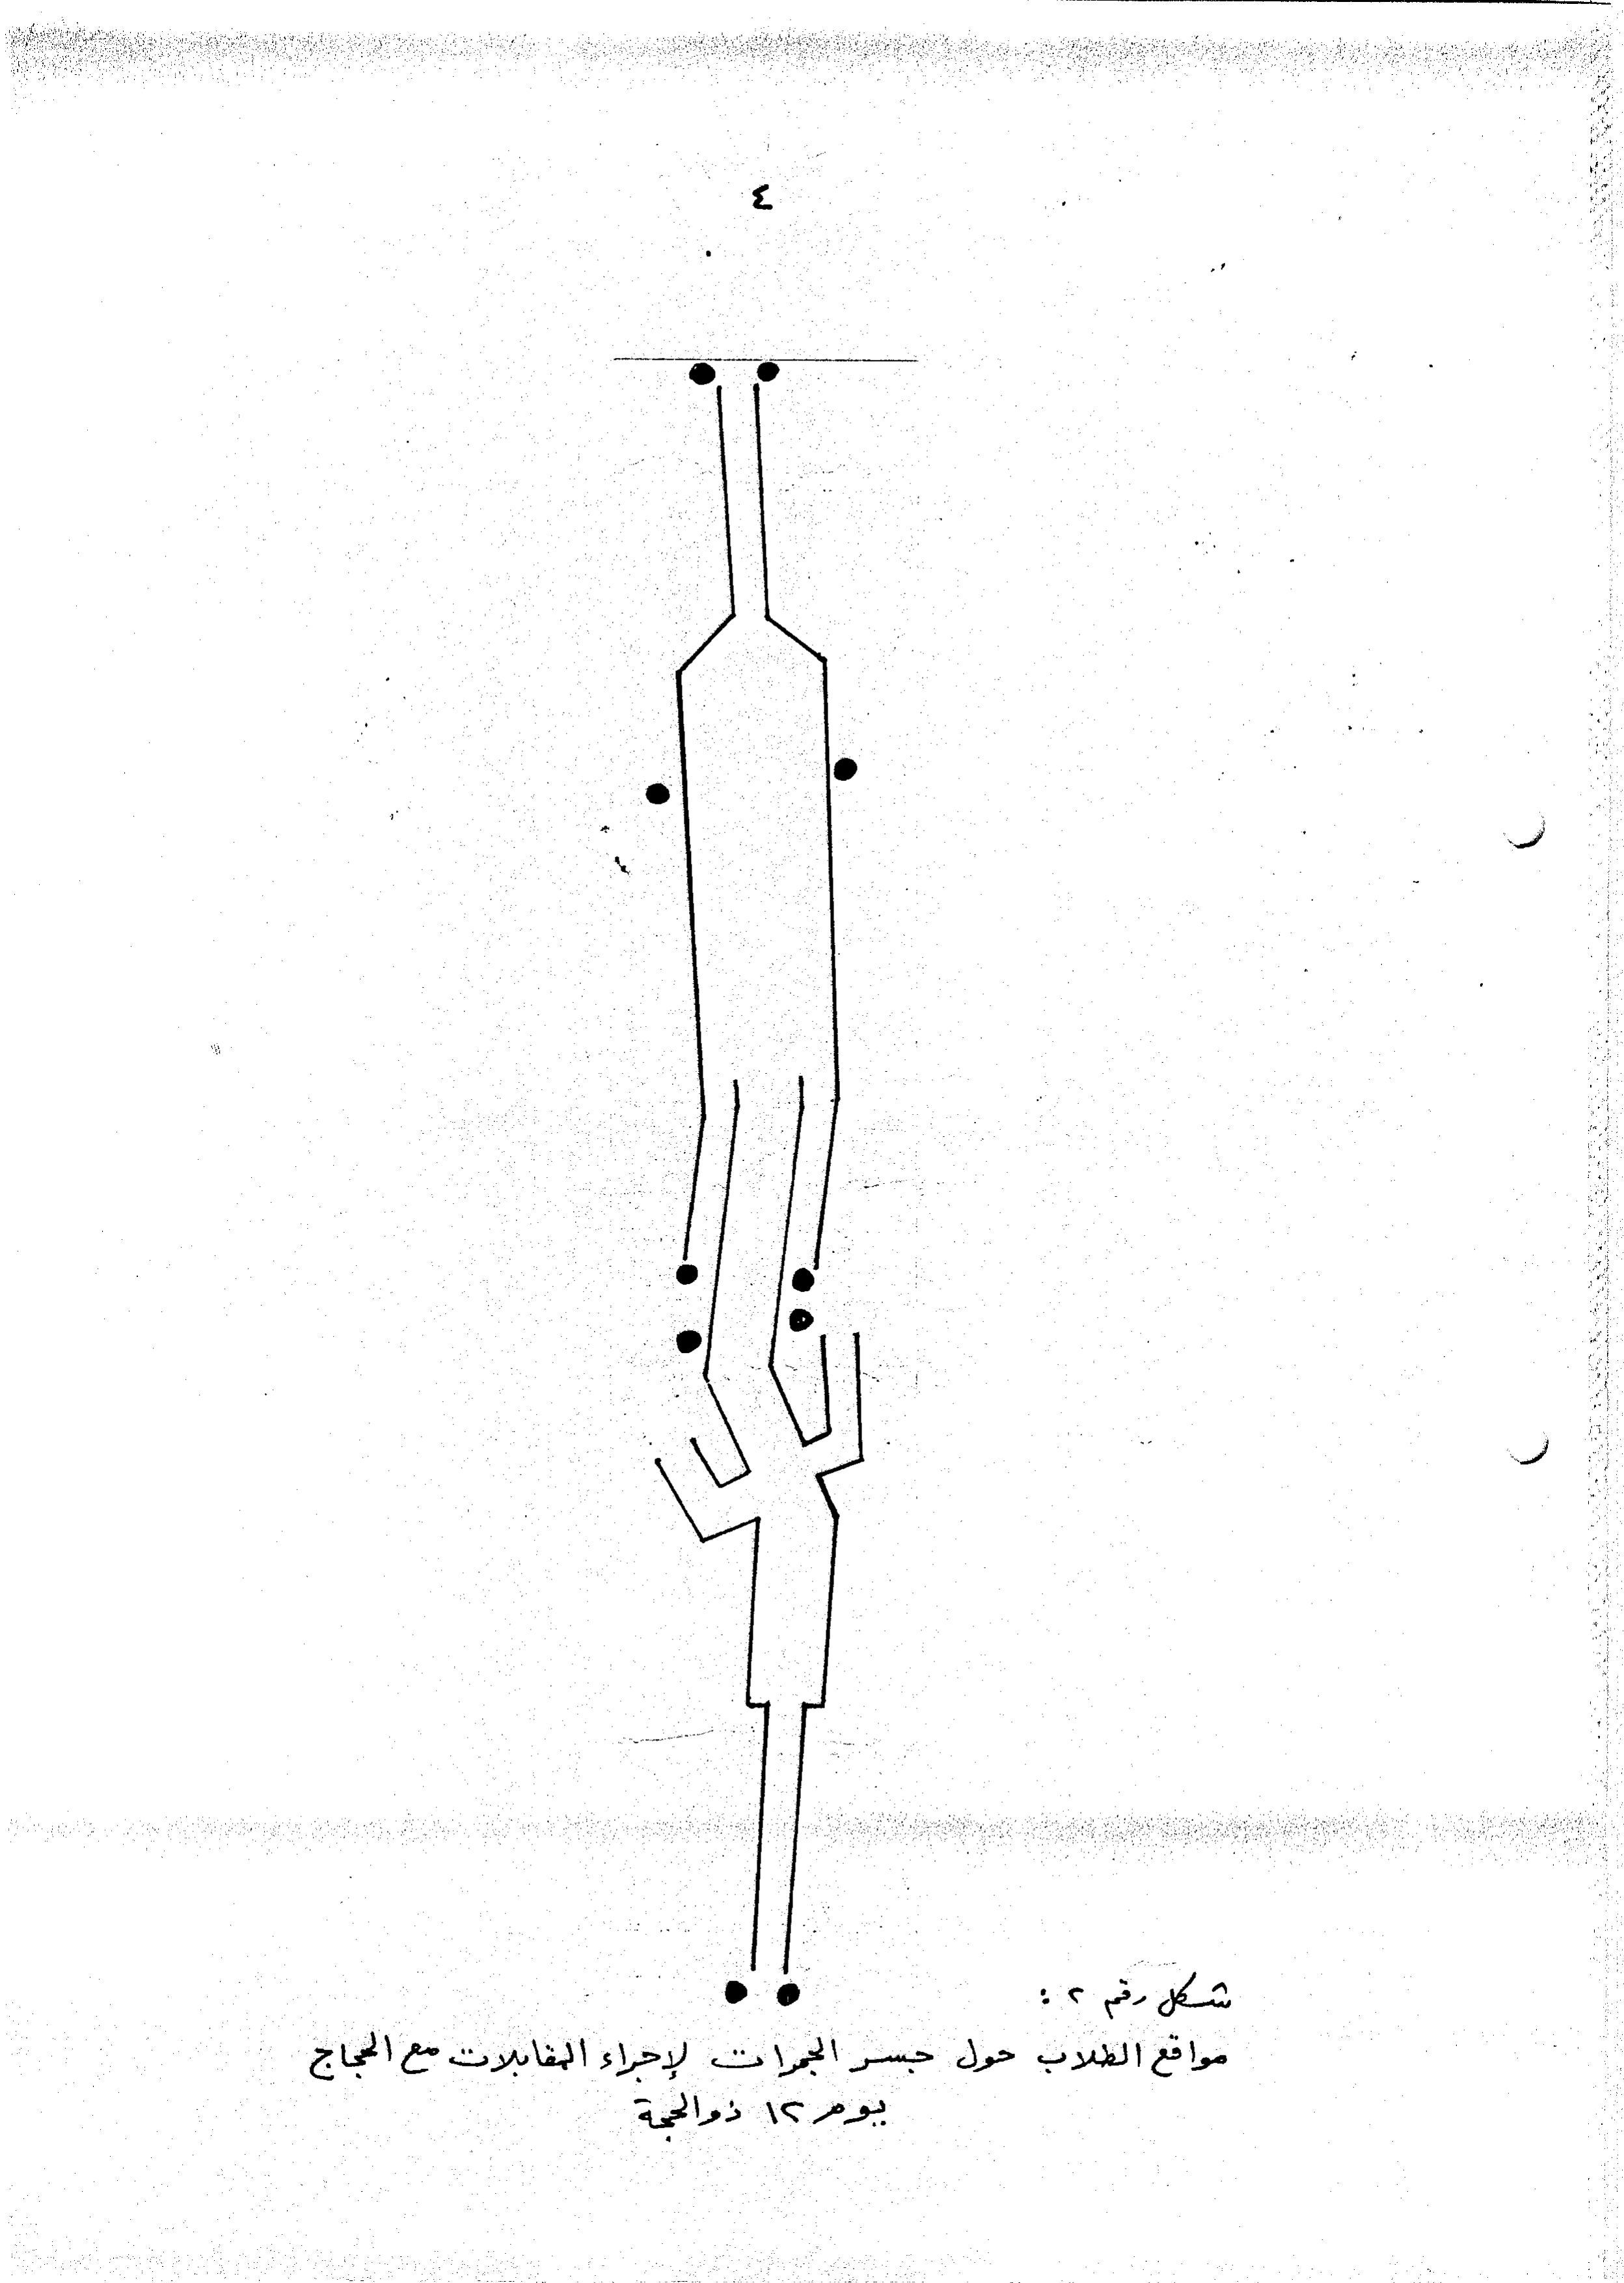 ٤
شكل رقم ٢ :
مواقع الطلاب حول جسر الجمرات لإجراء المقابلات مع الحجاج
يوم ١٢ ذوالحجة